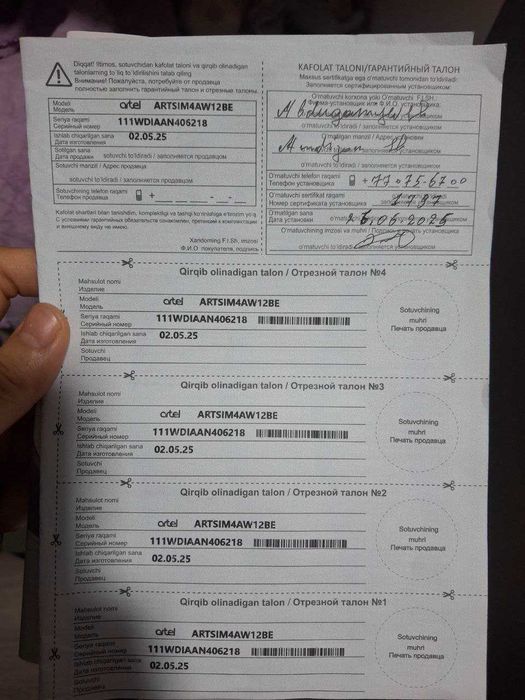 Diqqat! Iltimos, sotuvchidan kafolat taloni va qirqib olinadigan
talonlarning to'liq to'ldirilishini talab qiling
Внимание! Пожалуйста, потребуйте от продавца
полностью заполнить гарантийный талон и отрезные талоны.
Modeli
Модель
artel ARTSIM4AW12BE
Seriya raqami
Серийный номер
111WDIAAN406218
Ishlab chiqarilgan sana
Дата изготовления
02.05.25
Sotilgan sana
Дата продажи
sotuvchi to'ldiradi / заполняется продавцом
Sotuvchi manzili / Адрес продавца
sotuvchi to'ldiradi / заполняется продавцом
Sotuvchining telefon raqami
Телефон продавца
+
Kafolat shartlari bilan tanishdim, komplektligi va tashqi ko'rinishiga e'tirozim yo'q
С условиями гарантийных обязательств ознакомлен, претензий к комплектации
и внешнему виду не имею.
Xaridorning F.I.Sh, imzosi
Ф.И.О. покупателя, подпись
KAFOLAT TALONI/ГАРАНТИЙНЫЙ ТАЛОН
Maxsus sertifikatga ega o'rnatuvchi tomonidan to'ldiriladi
Заполняется сертифицированным установщиком
O'rnatuvchi korxona yoki O'rnatuvchi F.I.SH
Фирма-установщик или Ф.И.О. установщика:
O'rnatilgan manzil / Адрес установки
O'rnatuvchi telefon raqami
Телефон установщика
O'rnatuvchi sertifikat raqami
Номер сертификата установщика
O'rnatilgan sana
Дата установки
O'rnatuvchining imzosi va muhri / Подпись и печать установщика
Qirqib olinadigan talon / Отрезной талон №4
Mahsulot nomi
Изделие
Modeli
Модель
artel ARTSIM4AW12BE
Seriya raqami
Серийный номер
111WDIAAN406218
Ishlab chiqarilgan sana
Дата изготовления
02.05.25
Sotuvchi
Продавец
Sotuvchining
muhri
Печать продавца
Qirqib olinadigan talon / Отрезной талон №3
Mahsulot nomi
Изделие
Modeli
Модель
artel ARTSIM4AW12BE
Seriya raqami
Серийный номер
111WDIAAN406218
Ishlab chiqarilgan sana
Дата изготовления
02.05.25
Sotuvchi
Продавец
Sotuvchining
muhri
Печать продавца
Qirqib olinadigan talon / Отрезной талон №2
Mahsulot nomi
Изделие
Modeli
Модель
artel ARTSIM4AW12BE
Seriya raqami
Серийный номер
111WDIAAN406218
Ishlab chiqarilgan sana
Дата изготовления
02.05.25
Sotuvchi
Продавец
Sotuvchining
muhri
Печать продавца
Qirqib olinadigan talon / Отрезной талон №1
Mahsulot nomi
Изделие
Modeli
Модель
artel ARTSIM4AW12BE
Seriya raqami
Серийный номер
111WDIAAN406218
Ishlab chiqarilgan sana
Дата изготовления
02.05.25
Sotuvchi
Продавец
Sotuvchining
muhri
Печать продавца